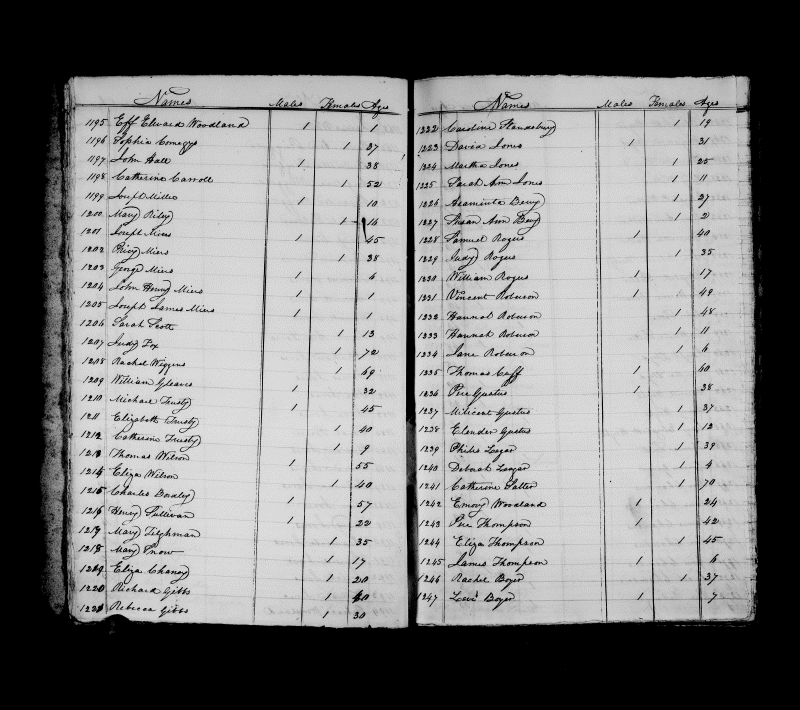 Names Males Females Ages
1195 Eff Edward Woodland 1 1
1196 Sophia Comegys 1 27
1197 John Hall 1 38
1198 Catherine Carroll 1 52
1199 Joseph Miller 1 10
1200 Mary Riley 1 16
1201 Joseph Miers 1 45
1202 Miers 1 38
1203 George Miers 1 6
1204 John Henry Miers 1 1
1205 Joseph James Miers 1 1
1206 Sarah Scott 1 13
1207 Judy Fox 1 72
1208 Rachel Wiggins 1 49
1209 William Gleaves 1 32
1210 Michael Trusty 1 45
1211 Elizabeth Trusty 1 40
1212 Catherine Trusty 1 9
1213 Thomas Wilson 1 55
1214 Eliza Wilson 1 40
1215 Charles 1 57
1216 Henry Sullivan 1 22
1217 Mary Tilghman 1 35
1218 Mary Snow 1 17
1219 Eliza Chaney 1 20
1220 Richard Gibbs 1 40
1221 Rebecca Gibbs 1 30
Names Males Females Ages
1222 Caroline Standsbury 1 19
1223 David Jones 1 31
1224 Martha Jones 1 25
1225 Sarah Ann Jones 1 11
1226 Araminta Berry 1 27
1227 Susan Ann Berry 1 2
1228 Samuel Rogers 1 40
1229 Judy Rogers 1 35
1230 William Rogers 1 17
1231 Vincent Roberson 1 49
1232 Hannah Roberson 1 48
1233 Hannah Roberson 1 11
1234 Jane Roberson 1 6
1235 Thomas Cuff 1 40
1236 Pere Gustus 1 38
1237 Milicent Gustus 1 37
1238 Elender Gustus 1 12
1239 Philis 1 39
1240 Deborah 1 4
1241 Catherine Salter 1 70
1242 Emory Woodland 1 24
1243 Pere Thompson 1 42
1244 Eliza Thompson 1 45
1245 James Thompson 1 6
1246 Rachel Boyer 1 37
1247 Levi Boyer 1 7